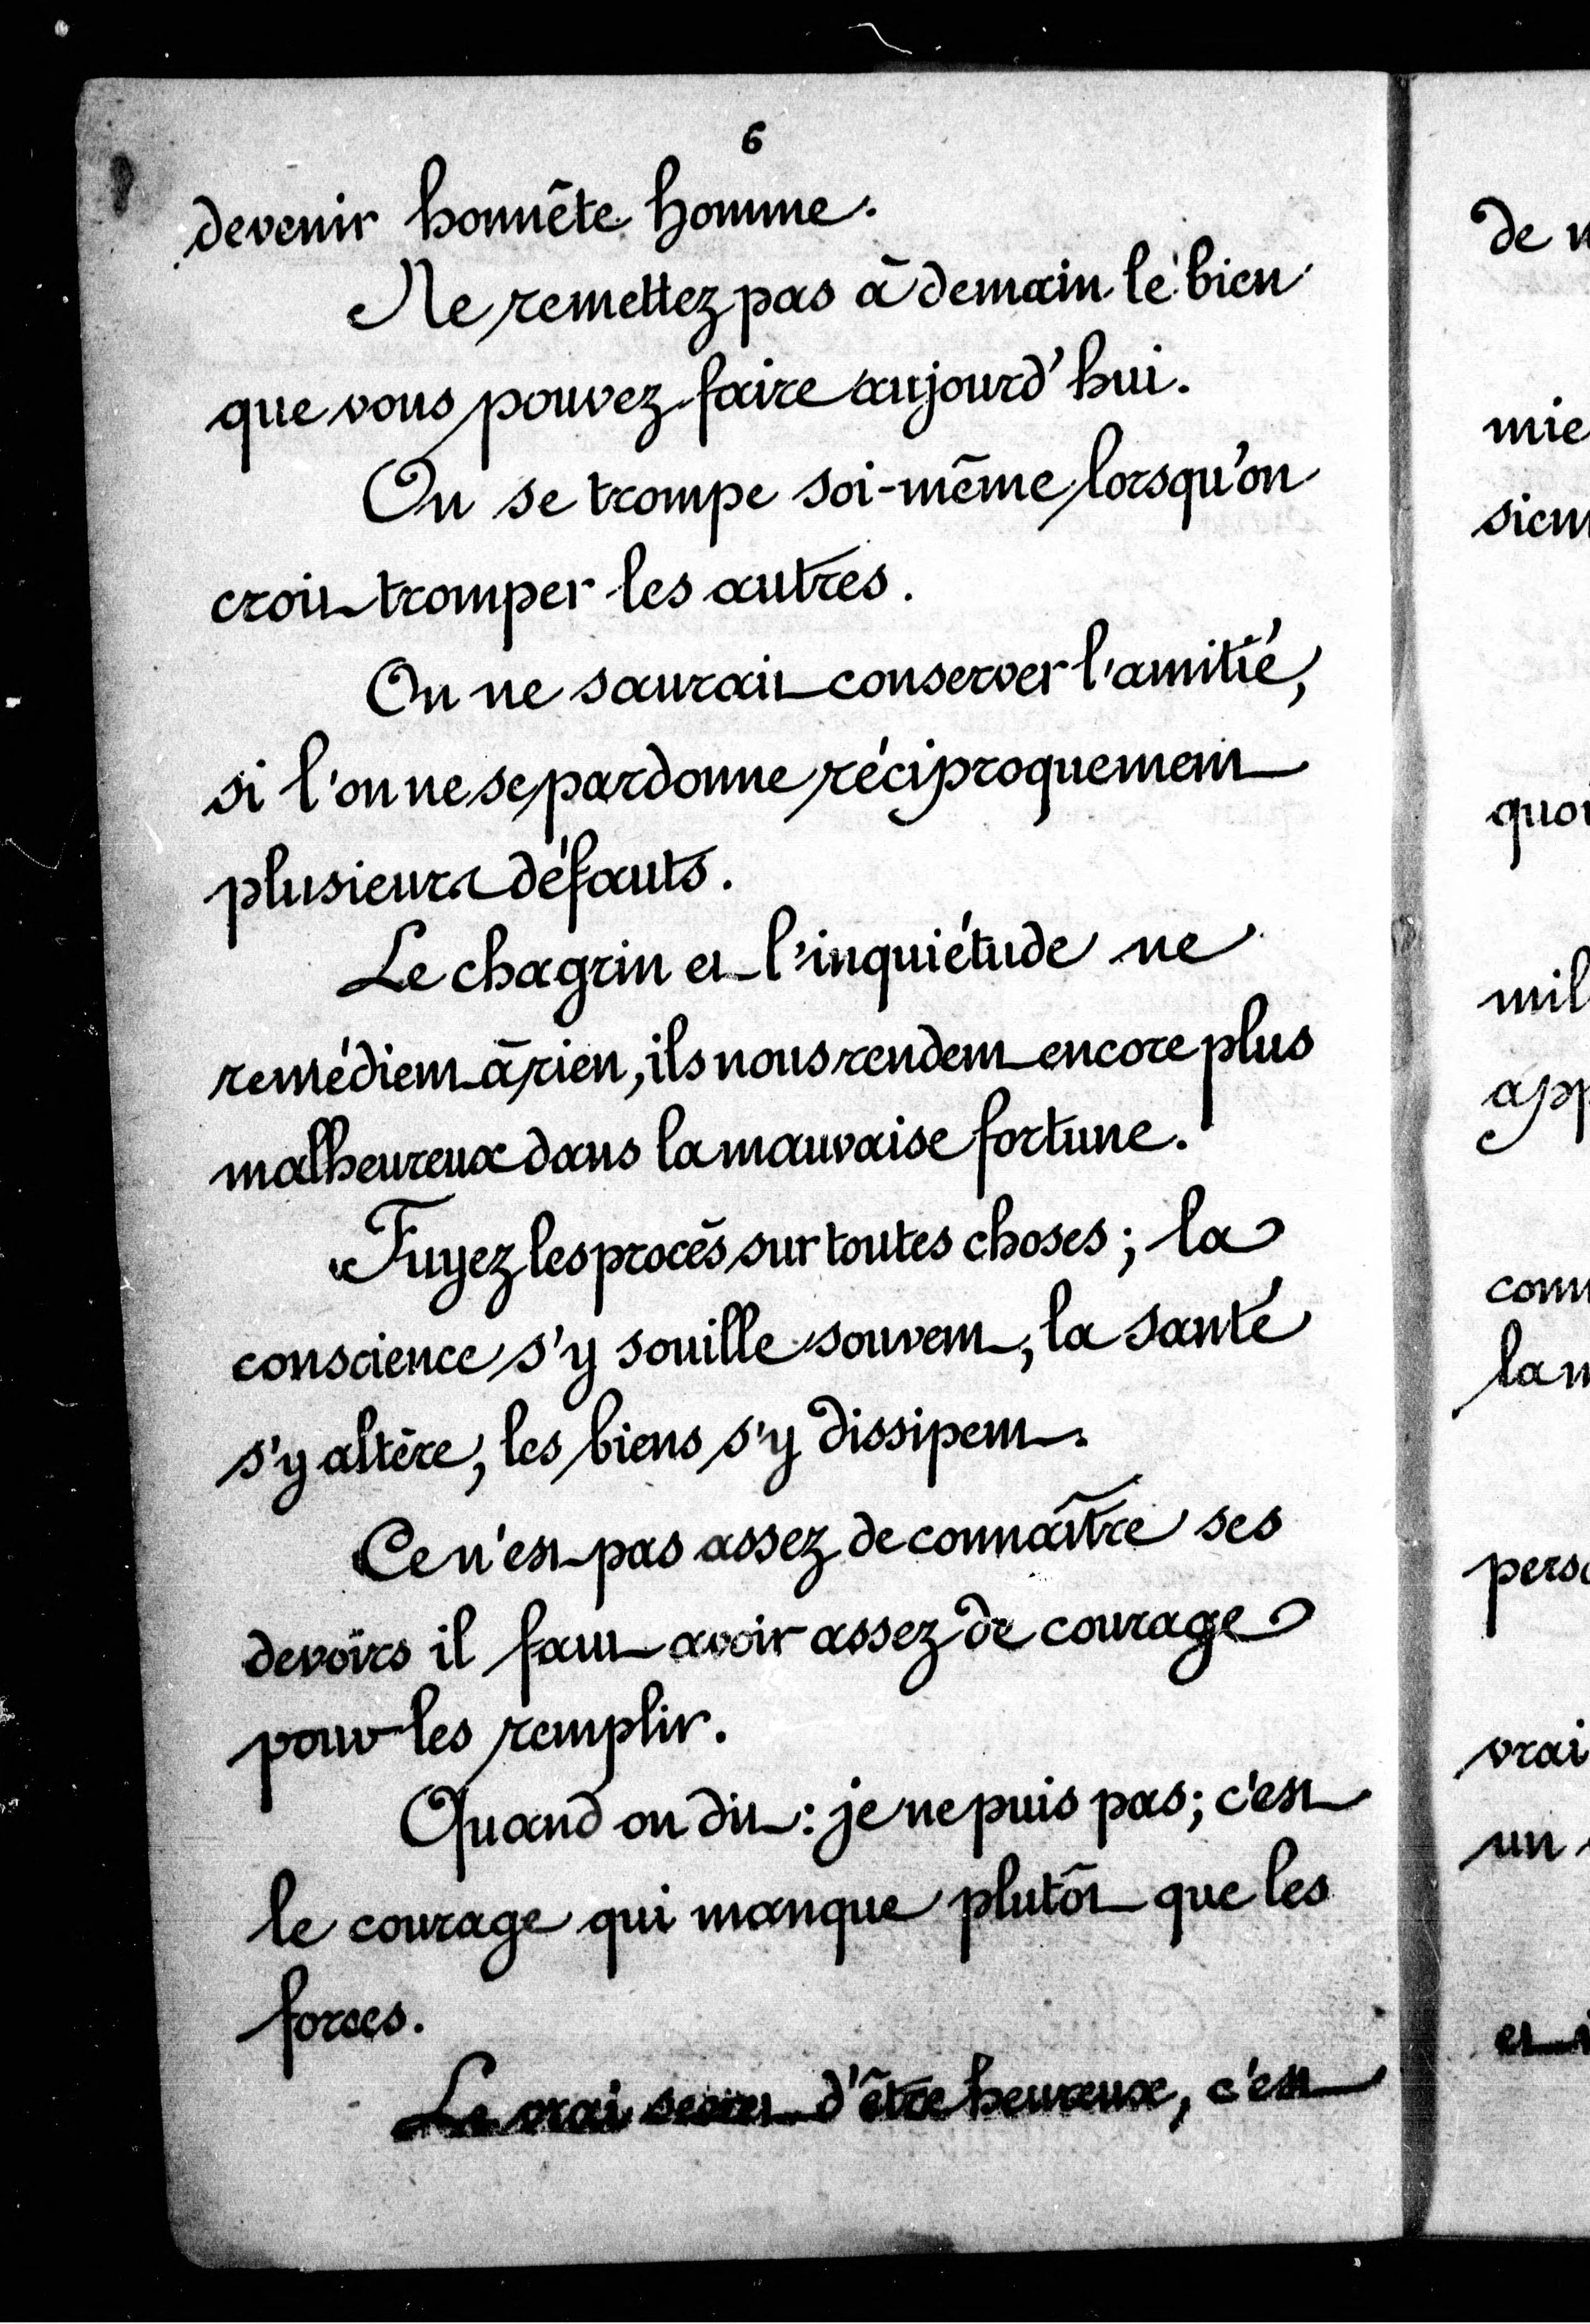 6
devenir honnête homme.
Ne remettez pas à demain le bien
que vous pouvez faire aujourd'hui.
On se trompe soi-même lorsqu'on
croit tromper les autres.
On ne saurait conserver l'amitié,
si l'on ne se pardonne réciproquement
plusieurs défauts.
Le chagrin et l'inquiétude ne
remédient à rien, ils nous rendent encore plus
malheureux dans la mauvaise fortune.
Fuyez les procès sur toutes choses ; la
conscience s'y souille souvent, la santé
s'y altère, les biens s'y dissipent.
Ce n'est pas assez de connaître ses
devoirs il faut avoir assez de courage
pour les remplir.
Quand on dit : je ne puis pas ; c'est
le courage qui manque plutôt que les
forces.
Le vrai secret d'être heureux, c'est
de
mie
quoi
mil
app
la
vrai
un
et